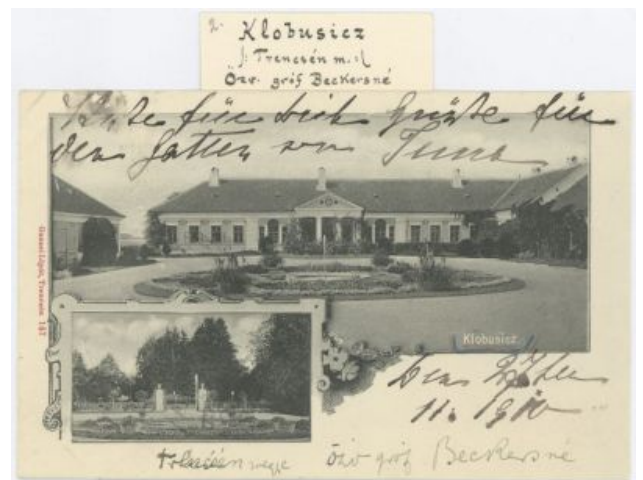 2.
Klobusicz
/: Trencsén m. :/
Özv. gróf Beckersné
für dich Grüße für
den Gatten von Irma
Gansel Lipót, Trencsén 147
Klobusicz
Den
11. 910
Trencsén megye özv gróf Beckersné